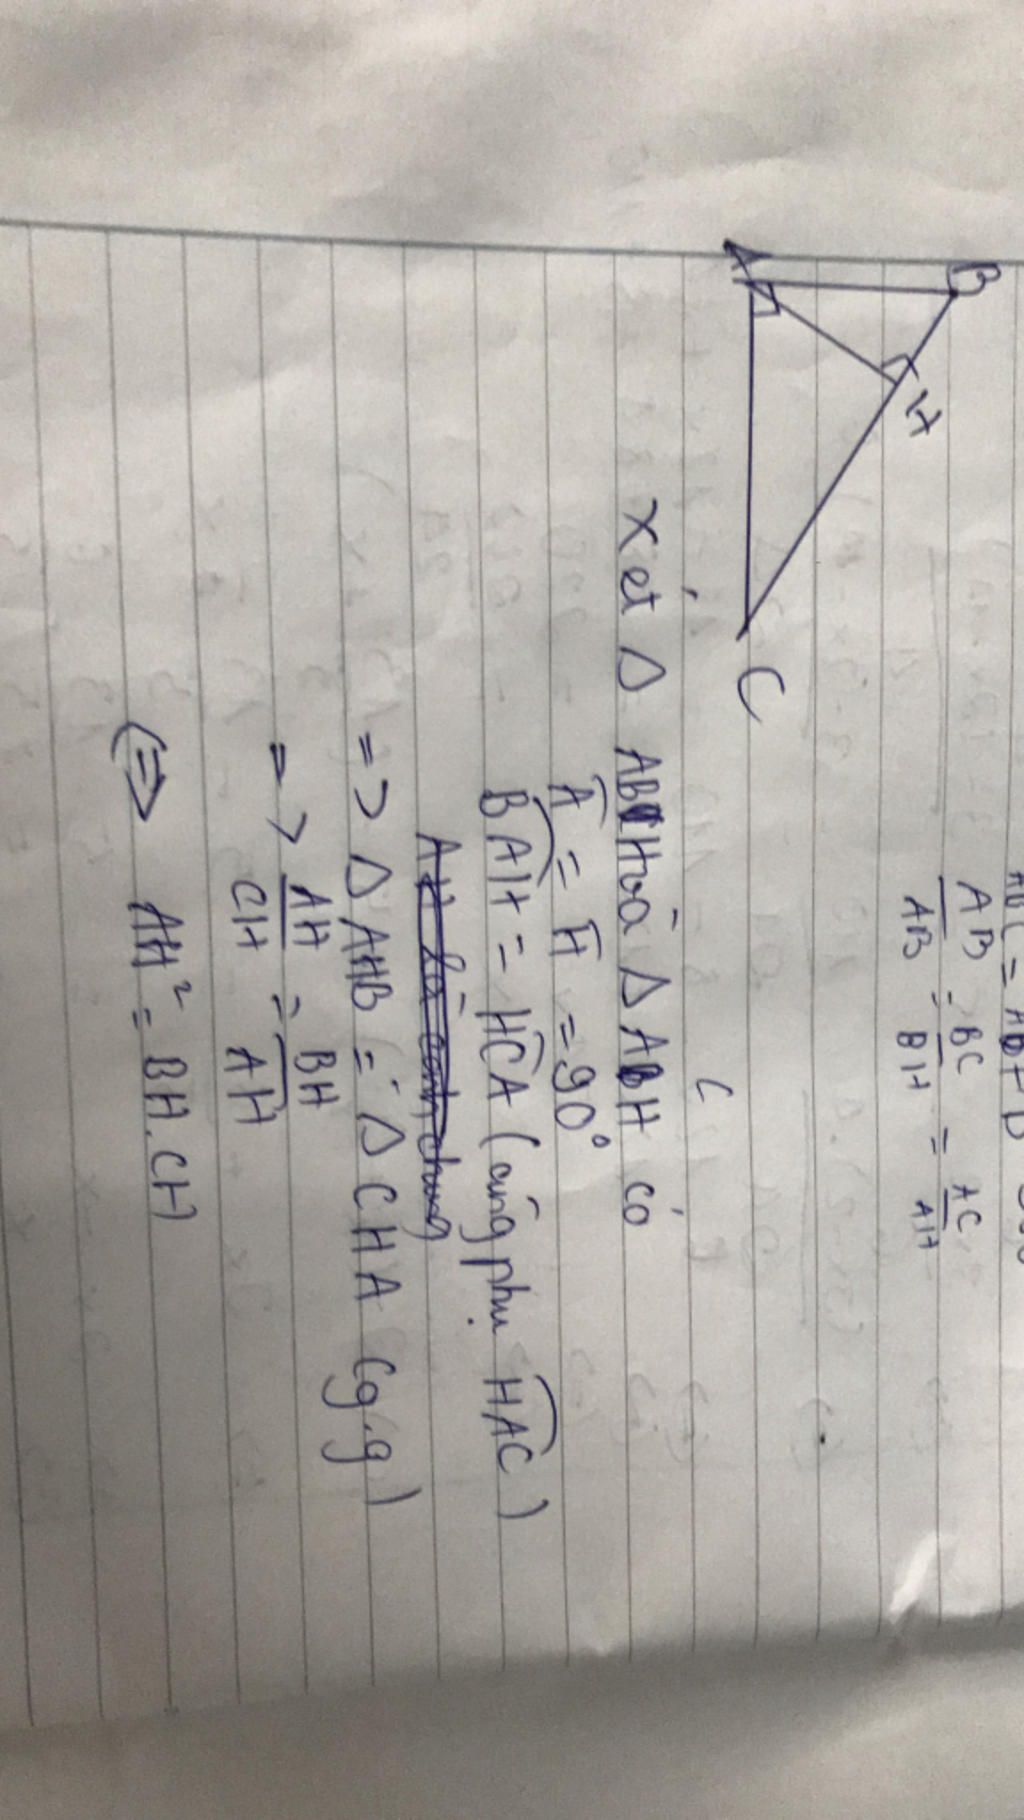 AB/AB = BC/BH = AC/AH
A
B
H
C
C
Xét Δ ABH và Δ ACH có
Â = Ĥ = 90°
BAH = HCA (cùng phụ HAC)
=> Δ AHB = Δ CHA (g.g)
=> AH/CH = BH/AH
(=> AH² = BH.CH